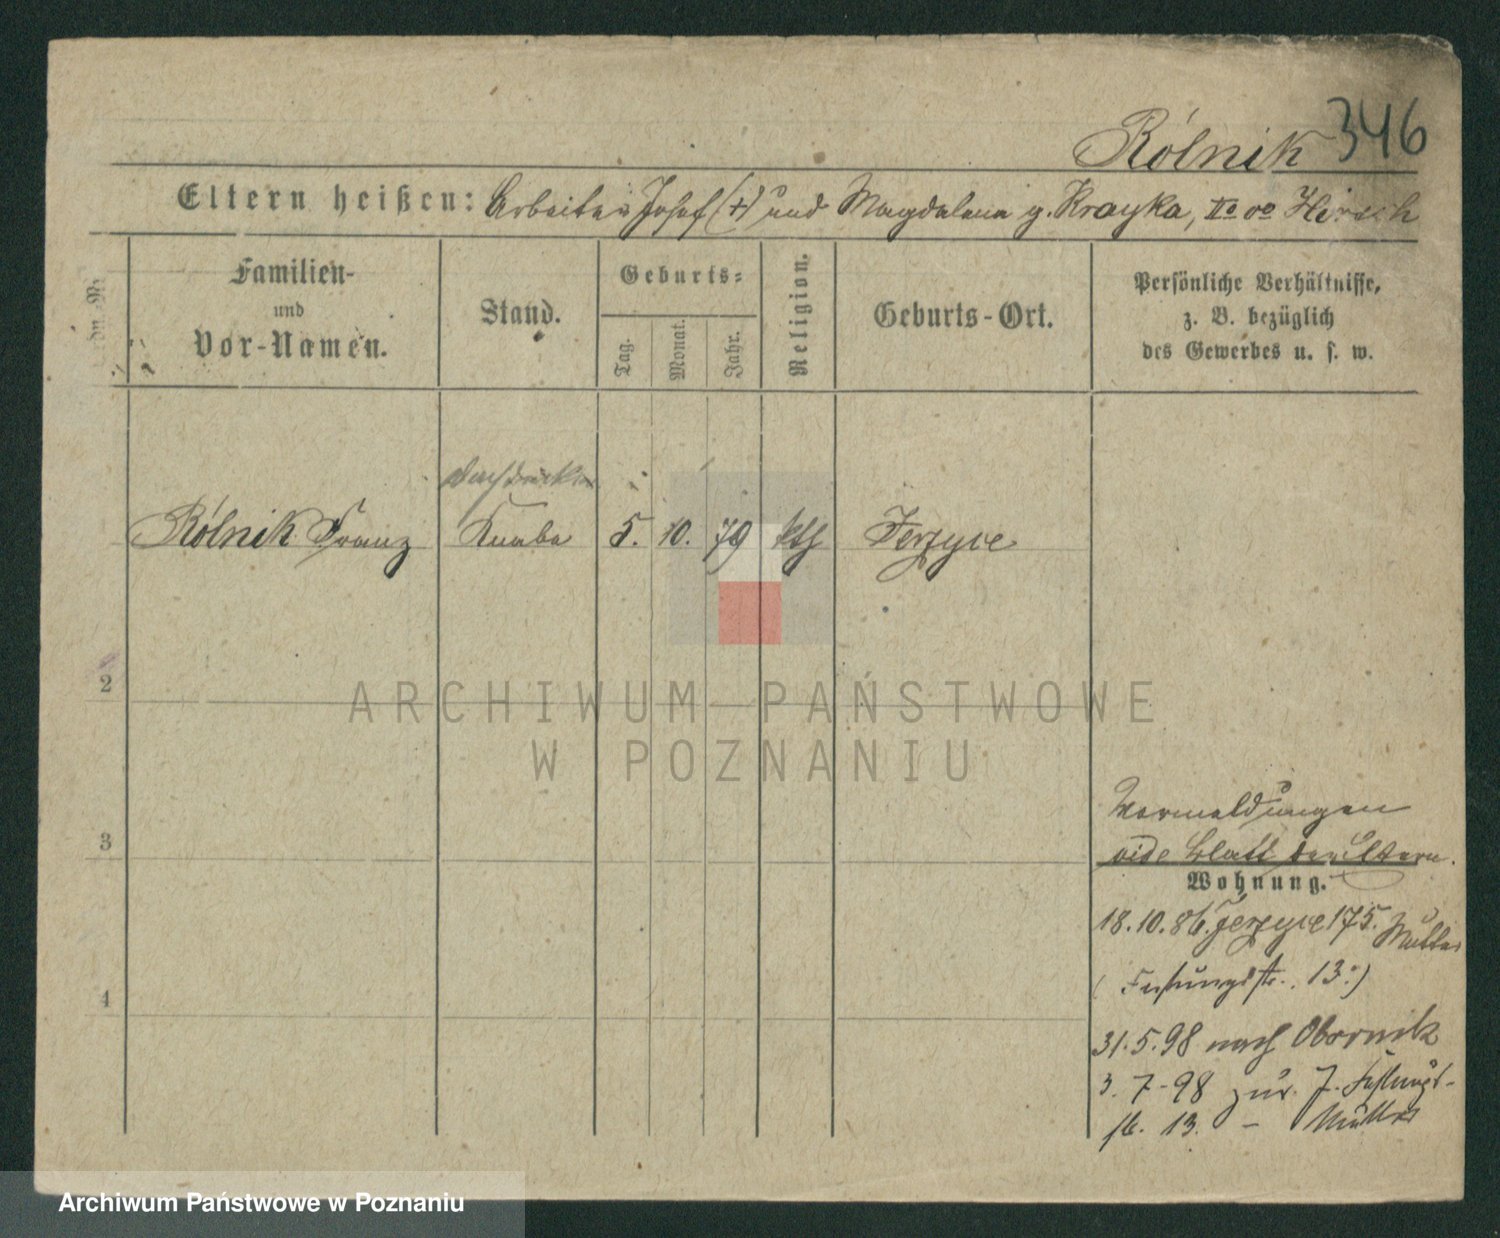 346
Rólnik
Eltern heißen: Arbeiter Josef (+) und Magdalena g. Krayka, IIo vo Hirsch
Familien-
und
Vor-Namen.
Stand.
Geburts-
Tag.
Monat.
Jahr.
Religion.
Geburts-Ort.
Persönliche Verhältnisse,
z. B. bezüglich
des Gewerbes u. s. w.
Rólnik Franz
Knabe
5.
10.
79
kth
Jerzyce
2
3
4
Vormeldungen
vide Blatt der Eltern.
Wohnung.
18.10.86. Jerzyce 175. Mutter
( Festungsstr. 13.)
31.5.98 nach Obornik
3.7-98 zur. J. Festungs-
str. 13. - Mutter
ARCHIWUM PAŃSTWOWE
W POZNANIU
Archiwum Państwowe w Poznaniu